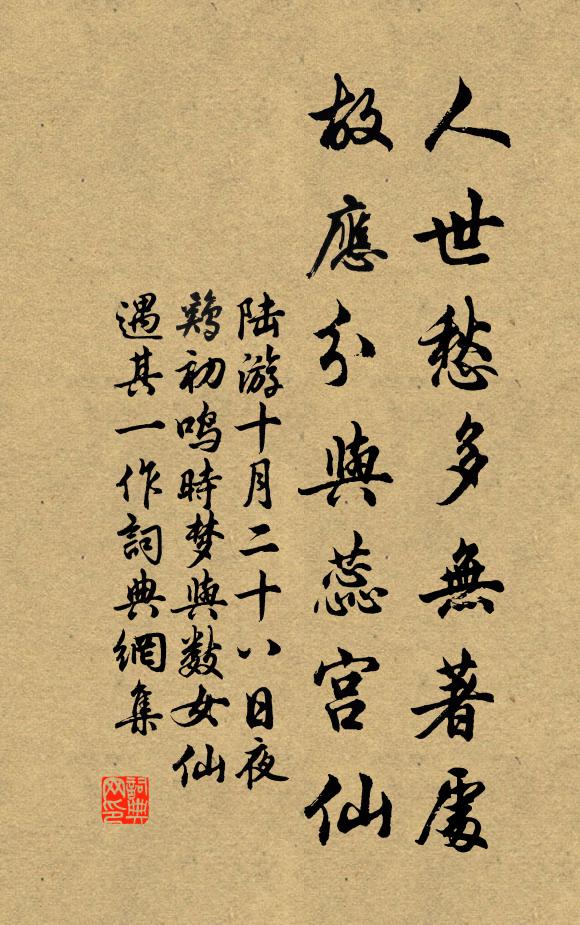 人世愁多無著處
故應分與蕊宮仙
陆游十月二十八日夜
鷄初鸣時梦與數女仙
遇其一作詞典網集
詞典网印